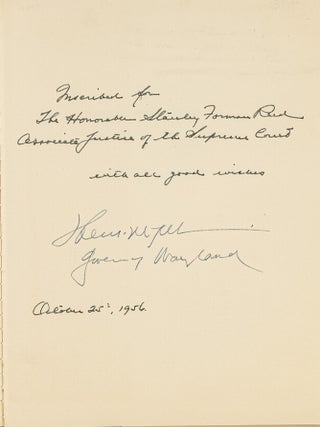 Inscribed for
The Honorable Stanley Forman Reed
Associate Justice of the Supreme Court
with all good wishes
Governor of Maryland
October 25, 1956.